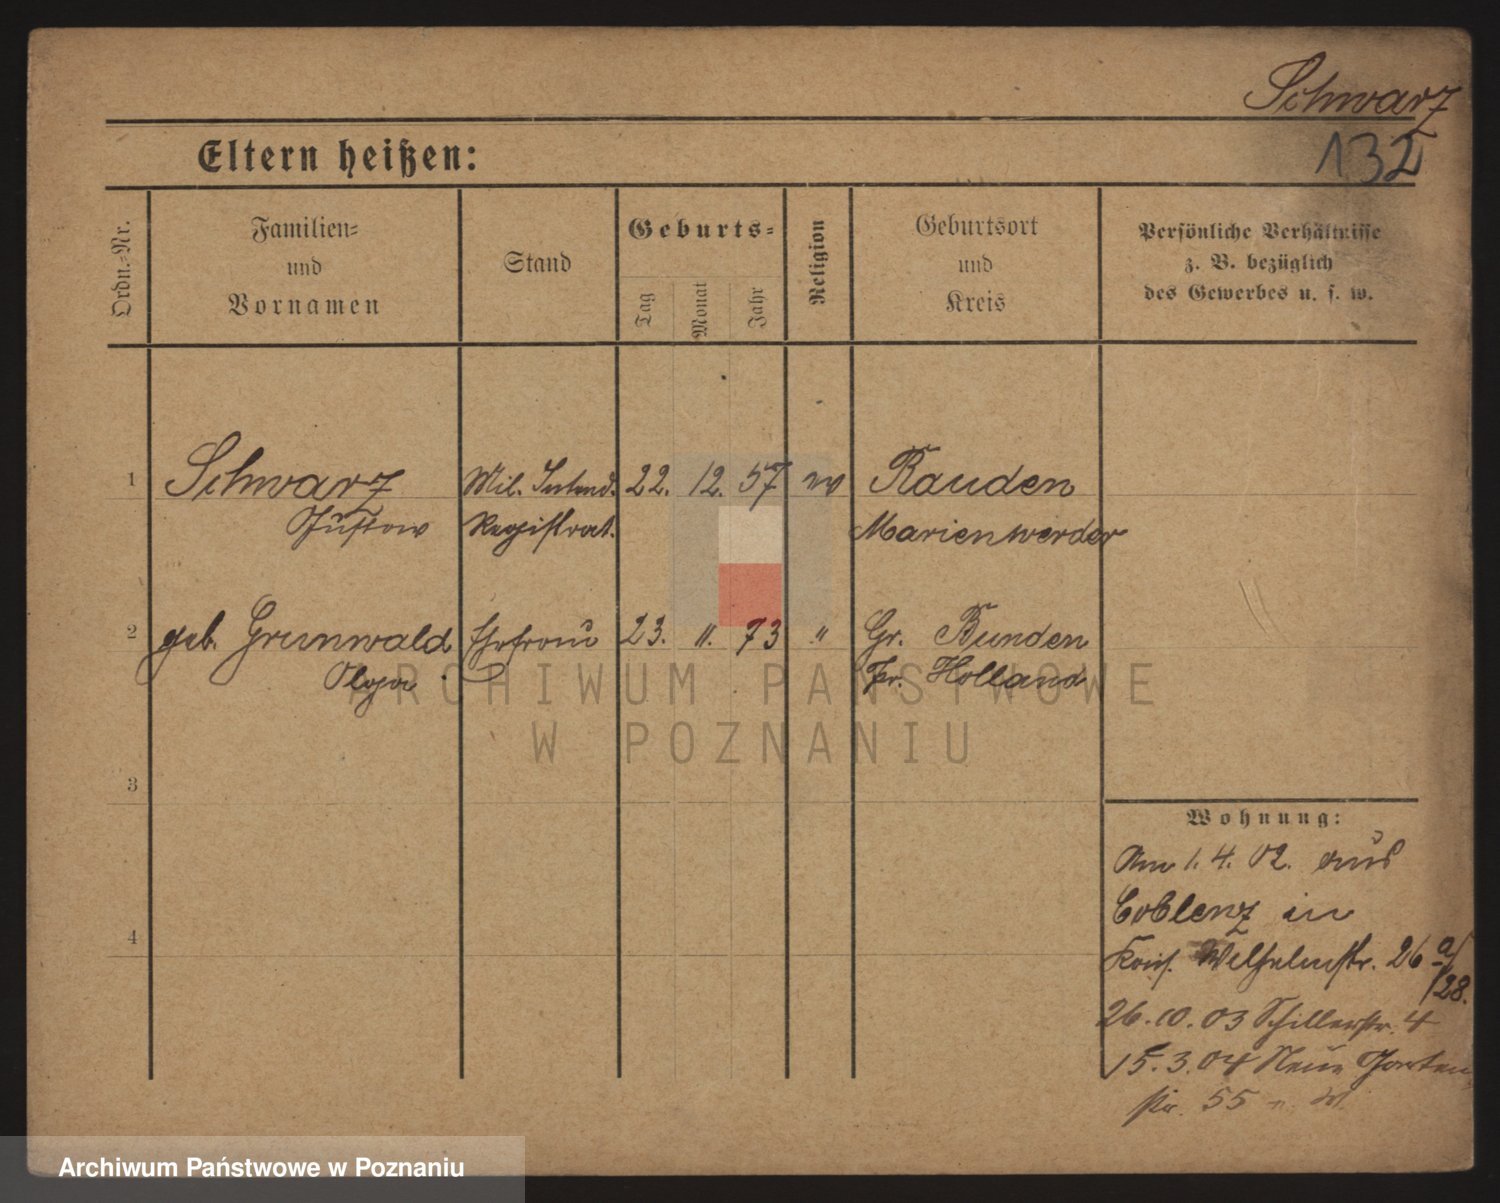 Schwarz
132
Eltern heißen:
Ordn.-Nr.
Familien-
und
Vornamen
Stand
Geburts-
Tag
Monat
Jahr
Religion
Geburtsort
und
Kreis
Persönliche Verhältnisse
z. B. bezüglich
des Gewerbes u. s. w.
1 Schwarz Mil. Intend. 22. 12. 57 ev Rauden
Gustow Registrat. Marienwerder
2 geb. Grunwald Ehefrau 23. 11. 73 " Gr. Bunden
Olga Pr. Holland
ARCHIWUM PAŃSTWOWE
W POZNANIU
3
4
Wohnung:
Am 1. 4. 02. aus
Coblenz in
Wilhelmstr. 26 a/
28.
26.10.03 Schillerstr. 4
15.3.04 Neue Garten
str. 55
Archiwum Państwowe w Poznaniu